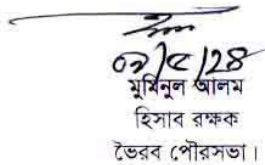 মুমিনুল আলম
হিসাব রক্ষক
ভৈরব পৌরসভা।